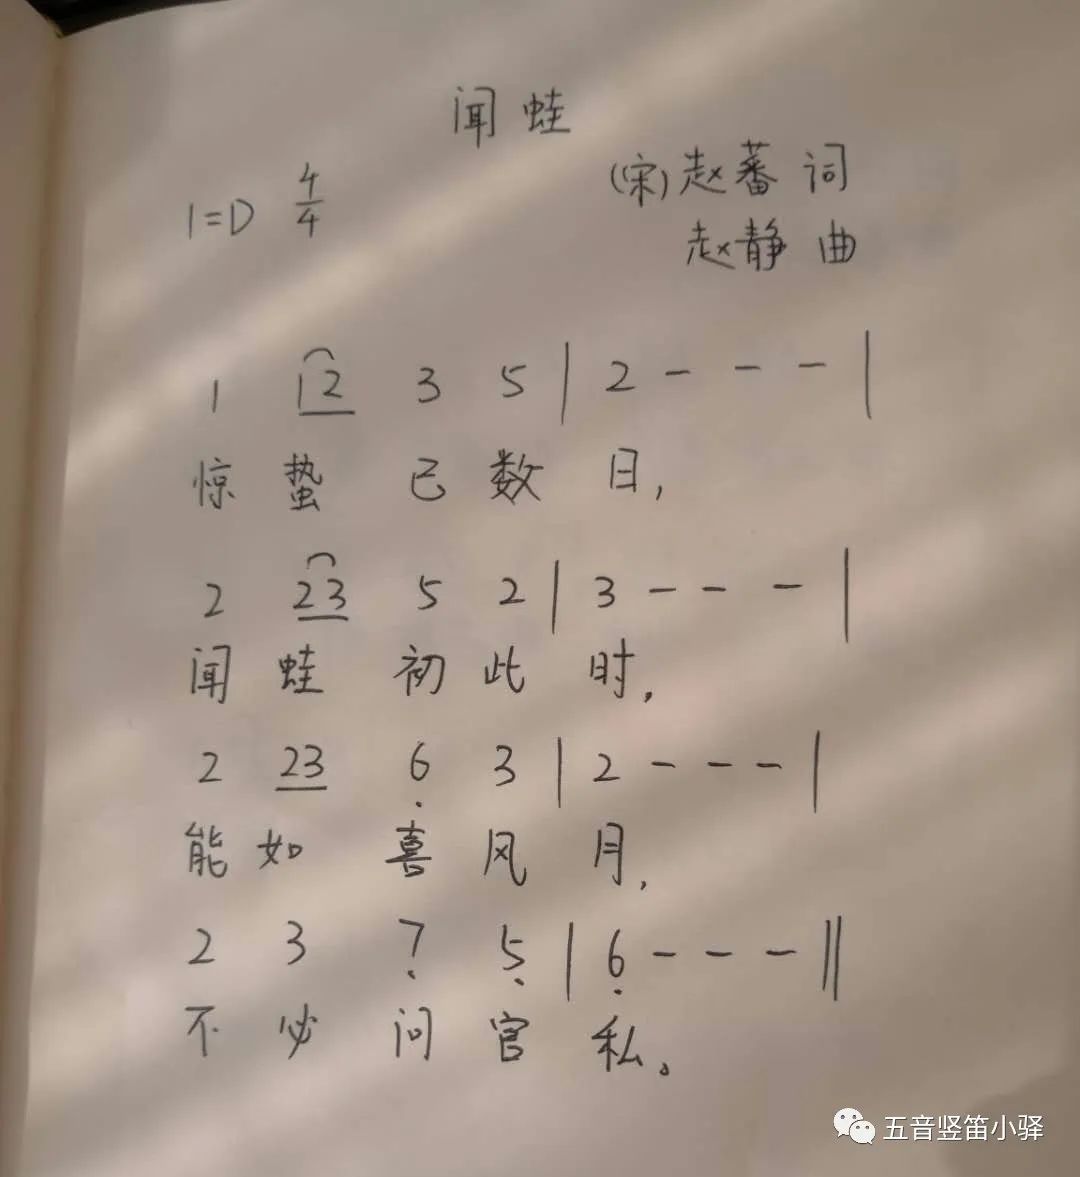 闻蛙
1=D 4/4 (宋)赵蕃 词
赵静 曲
1 12 3 5 | 2 - - - |
惊 蛰 已 数 日,
2 23 5 2 | 3 - - - |
闻 蛙 初 此 时,
2 23 6̣ 3 | 2 - - - |
能 如 喜 风 月,
2 3 7̣ 5̣ | 6̣ - - - ‖
不 必 问 官 私。
五音竖笛小驿